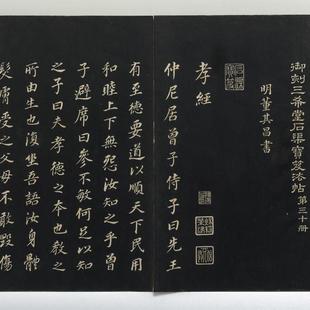 御刻三希堂石渠寶笈法帖第三十册
明董其昌書
孝經
仲尼居曾子侍子曰先王
有至德要道以順天下民用
和睦上下無怨汝知之乎曾
子避席曰參不敏何足以知
之子曰夫孝德之本也教之
所由生也復坐吾語汝身體
髮膚受之父母不敢毀傷